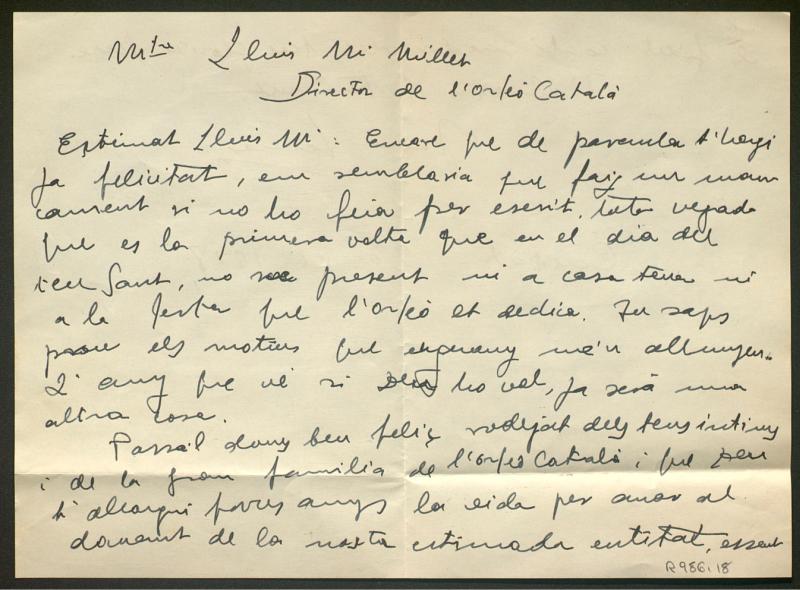 Mtre Lluis Mª Millet
Director de l'Orfeó Català
Estimat Lluis Mª: Encare que de paraula t'hagi
ja felicitat, em semblaria que faig un man
cament si no ho feia per escrit, tota vegada
que es la primera volta que en el dia del
teu Sant, no present ni a casa teva ni
a la festa que l'Orfeó et dedica. Tu saps
prou els motius que enguany me'n allunyen..
L'any que vé si Deu ho vol, ja serà una
altra cosa.
Passa'l doncs ben feliç rodejat dels teus intims
i de la gran familia de l'Orfeó Català i que Deu
t'allargui forces anys la vida per anar al
davant de la nostra estimada entitat, essent
R986.18